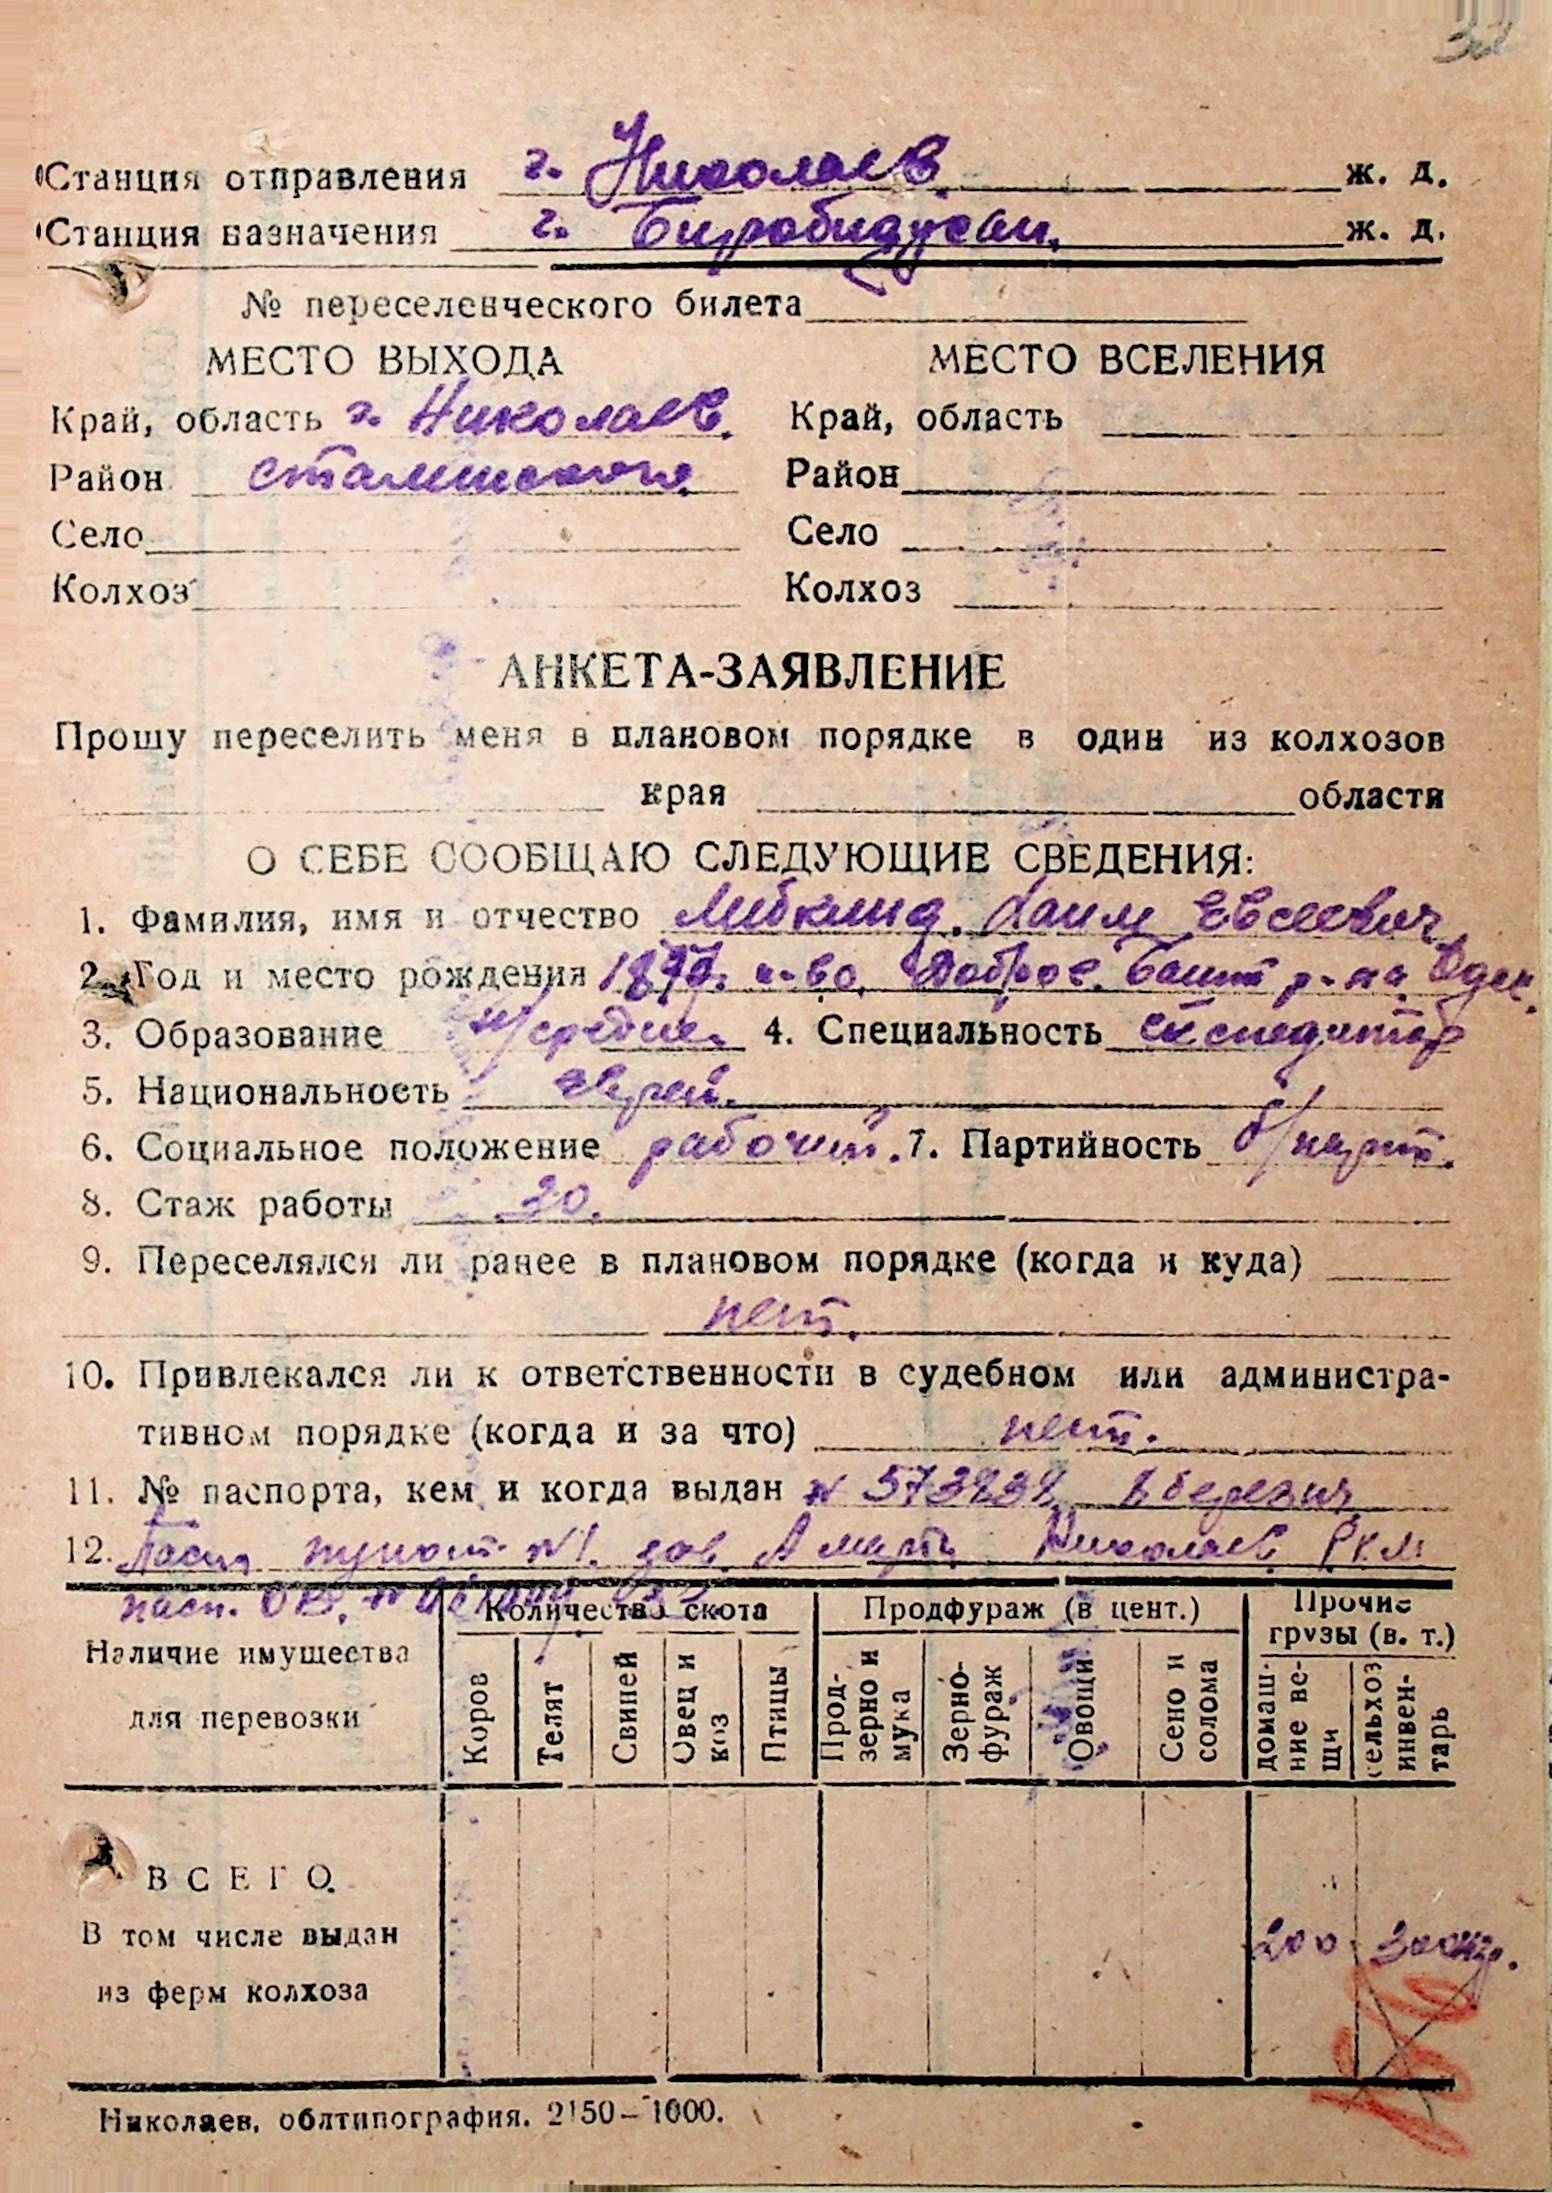 32
Станция отправления г. Николаев ж. д.
Станция назначения г. Биробиджан ж. д.
№ переселенческого билета
МЕСТО ВЫХОДА МЕСТО ВСЕЛЕНИЯ
Край, область г. Николаев. Край, область
Район Сталинского Район
Село Село
Колхоз Колхоз
АНКЕТА-ЗАЯВЛЕНИЕ
Прошу переселить меня в плановом порядке в один из колхозов
края области
О СЕБЕ СООБЩАЮ СЛЕДУЮЩИЕ СВЕДЕНИЯ:
1. Фамилия, имя и отчество Либкинд Хаим Евсеевич
2. Год и место рождения Доброе. Башт р-на Одес.
3. Образование н/средне. 4. Специальность експедитор
5. Национальность еврей.
6. Социальное положение рабочий. 7. Партийность б/парт.
8. Стаж работы 30.
9. Переселялся ли ранее в плановом порядке (когда и куда)
нет.
10. Привлекался ли к ответственности в судебном или администра-
тивном порядке (когда и за что) нет.
11. № паспорта, кем и когда выдан № Березич
12. пункт №1. Николаев РКМ
Количество скота Продфураж (в цент.) Прочие грузы (в. т.)
Наличие имущества для перевозки
Коров Телят Свиней Овец и коз Птицы Прод-зерно и мука Зерно-фураж Овощи Сено и солома домаш-ние ве-щи сельхоз инвен-тарь
ВСЕГО.
В том числе выдан 200 300кгр.
из ферм колхоза
Николаев, облтипография. 2150—1000.